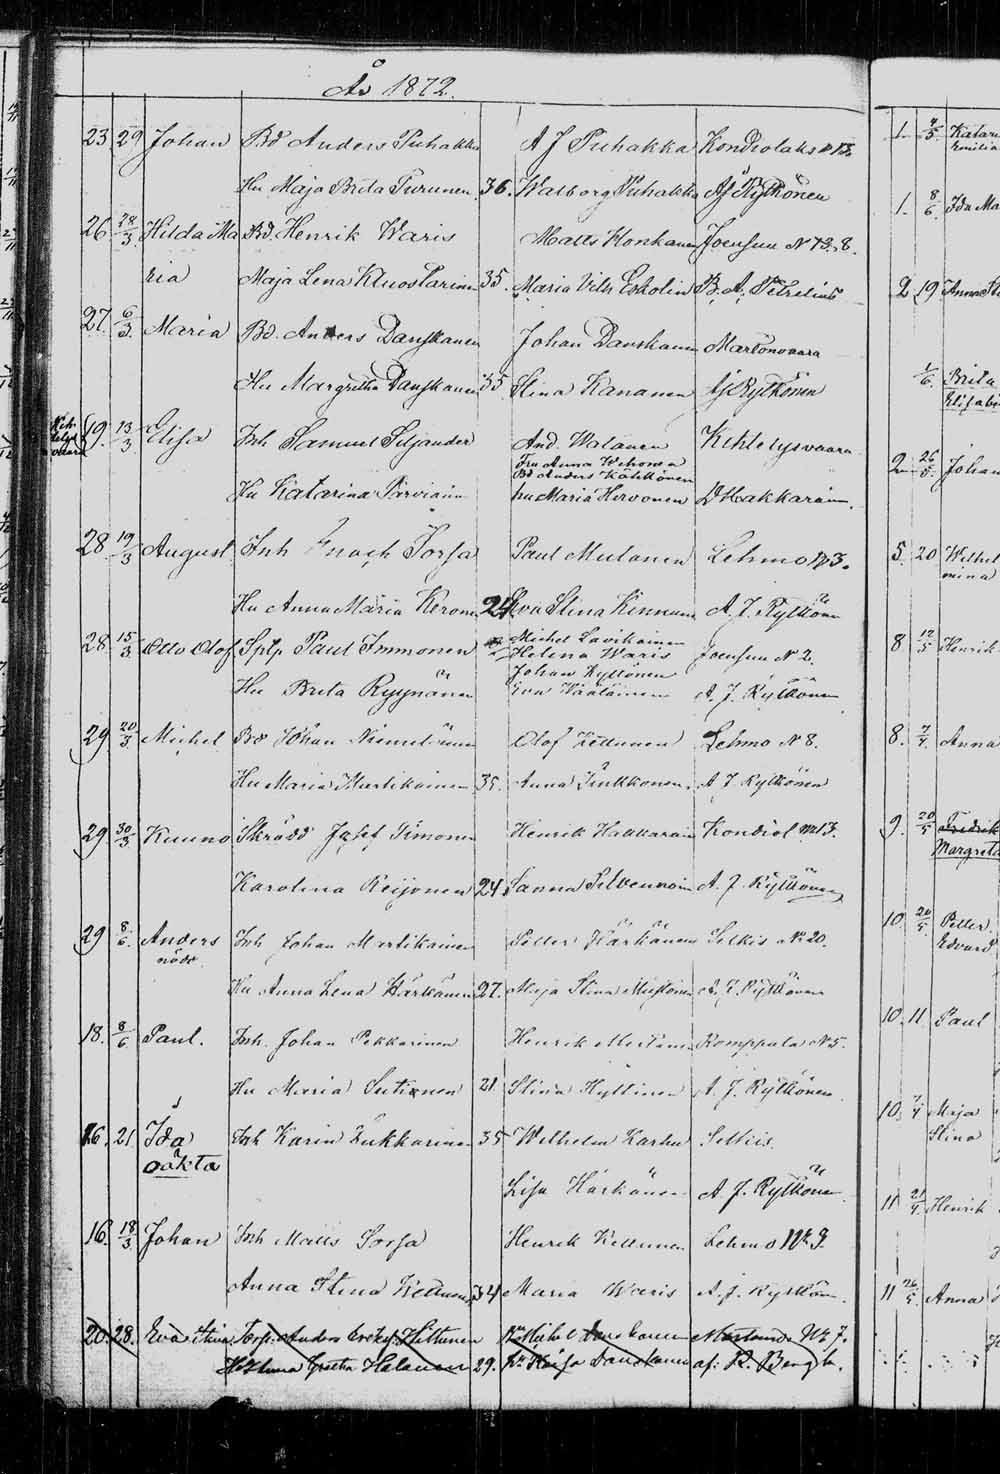 År 1872.
23 29 Johan Bd Anders Puhakka A J Puhakka Kondiolaks № 13
Hu Maja Brita Turunen 36. Walborg Puhakka AJ Rytkönen
26 28/3 Hilda Ma Bd. Henrik Waris Matts Honkanen Joensuu N 73.8.
ria Maja Lena Kluostarinen 35. Maria Eskolin B. A.
27. 6/3. Maria Bd. Anders Danskanen Johan Danskanen Martonvaara
Hu Margretha Danskanen 35 Stina Kananen AJ Rytkönen
19. 13/3 Elisa Inh Samuel Siljander And. Walanen Kihtelysvaara
Fru Anna
Bd Anders
Hu Katarina Parviainen hu Maria Hirvonen D Hakkarain.
28 19/3 August Inh Enoch Sorsa Paul Mulanen Lehmo № 3.
Hu Anna Maria Keronen 24. Eva Stina Kinnunen A. J. Rytkönen
28 15/3 Otto Olof Sptp Paul Immonen Michel Savikainen
Helena Waris Joensuu N 2.
Johan Kyllönen
Hu Brita Ryynänen Eva Väätäinen A. J. Rytkönen
29 20/3 Michel Bd Johan Olof Kettunen Lehmo N 8.
Hu Maria Martikainen 35. Anna A J Rytkönen
29 30/3 Kuuno Skrädd Josef Simonen Henrik Hakkarain Kondiol № 13.
Karolina Reijonen 24 Sanna Silvennoin A. J. Rytkönen
29 8/6. Anders Inh Johan Martikainen Petter Härkänen Selkis № 20.
nöde.
Hu Anna Lena Härkönen 27. Maja Stina Mustonen A. J. Rytkönen
18. 8/6 Paul. Inh. Johan Pekkarinen Henrik Romppala № 5.
Hu Maria Sutinen 21 Stina Hyttinen A. J. Rytkönen
16. 21 Ida Inh Karin 35 Wilhelm Karhu Selkis
oäkta
Lisa Härkönen A. J. Rytkönen
16. 18/3 Johan Inh Matts Sorsa Henrik Kettunen Lehmo № 9.
Anna Stina Kettunen 34 Maria Waris A. J. Rytkönen
20. 28. Eva Stina Torp. Anders Hiltunen Michel Danskanen № 7.
Hu Anna Gretha Halanen 29. Hu Kaisa Danskanen af: R. Bergh.
1. 4/5 Katari
Emilia
1. 8/6. Ida Ma
2 19 Anna Sti
1/6. Brita
Elisabe
2 26/5. Johan
5. 20 Wilhel
mina
8. 12/5 Henrik
8. 7/4. Anna
9. 20/5 Fredrik
Margreta
10. 20/5. Petter.
Edvard
10. 11 Paul
10. 7/4 Maja
Stina
11 21/4. Henrik
11 26/5. Anna